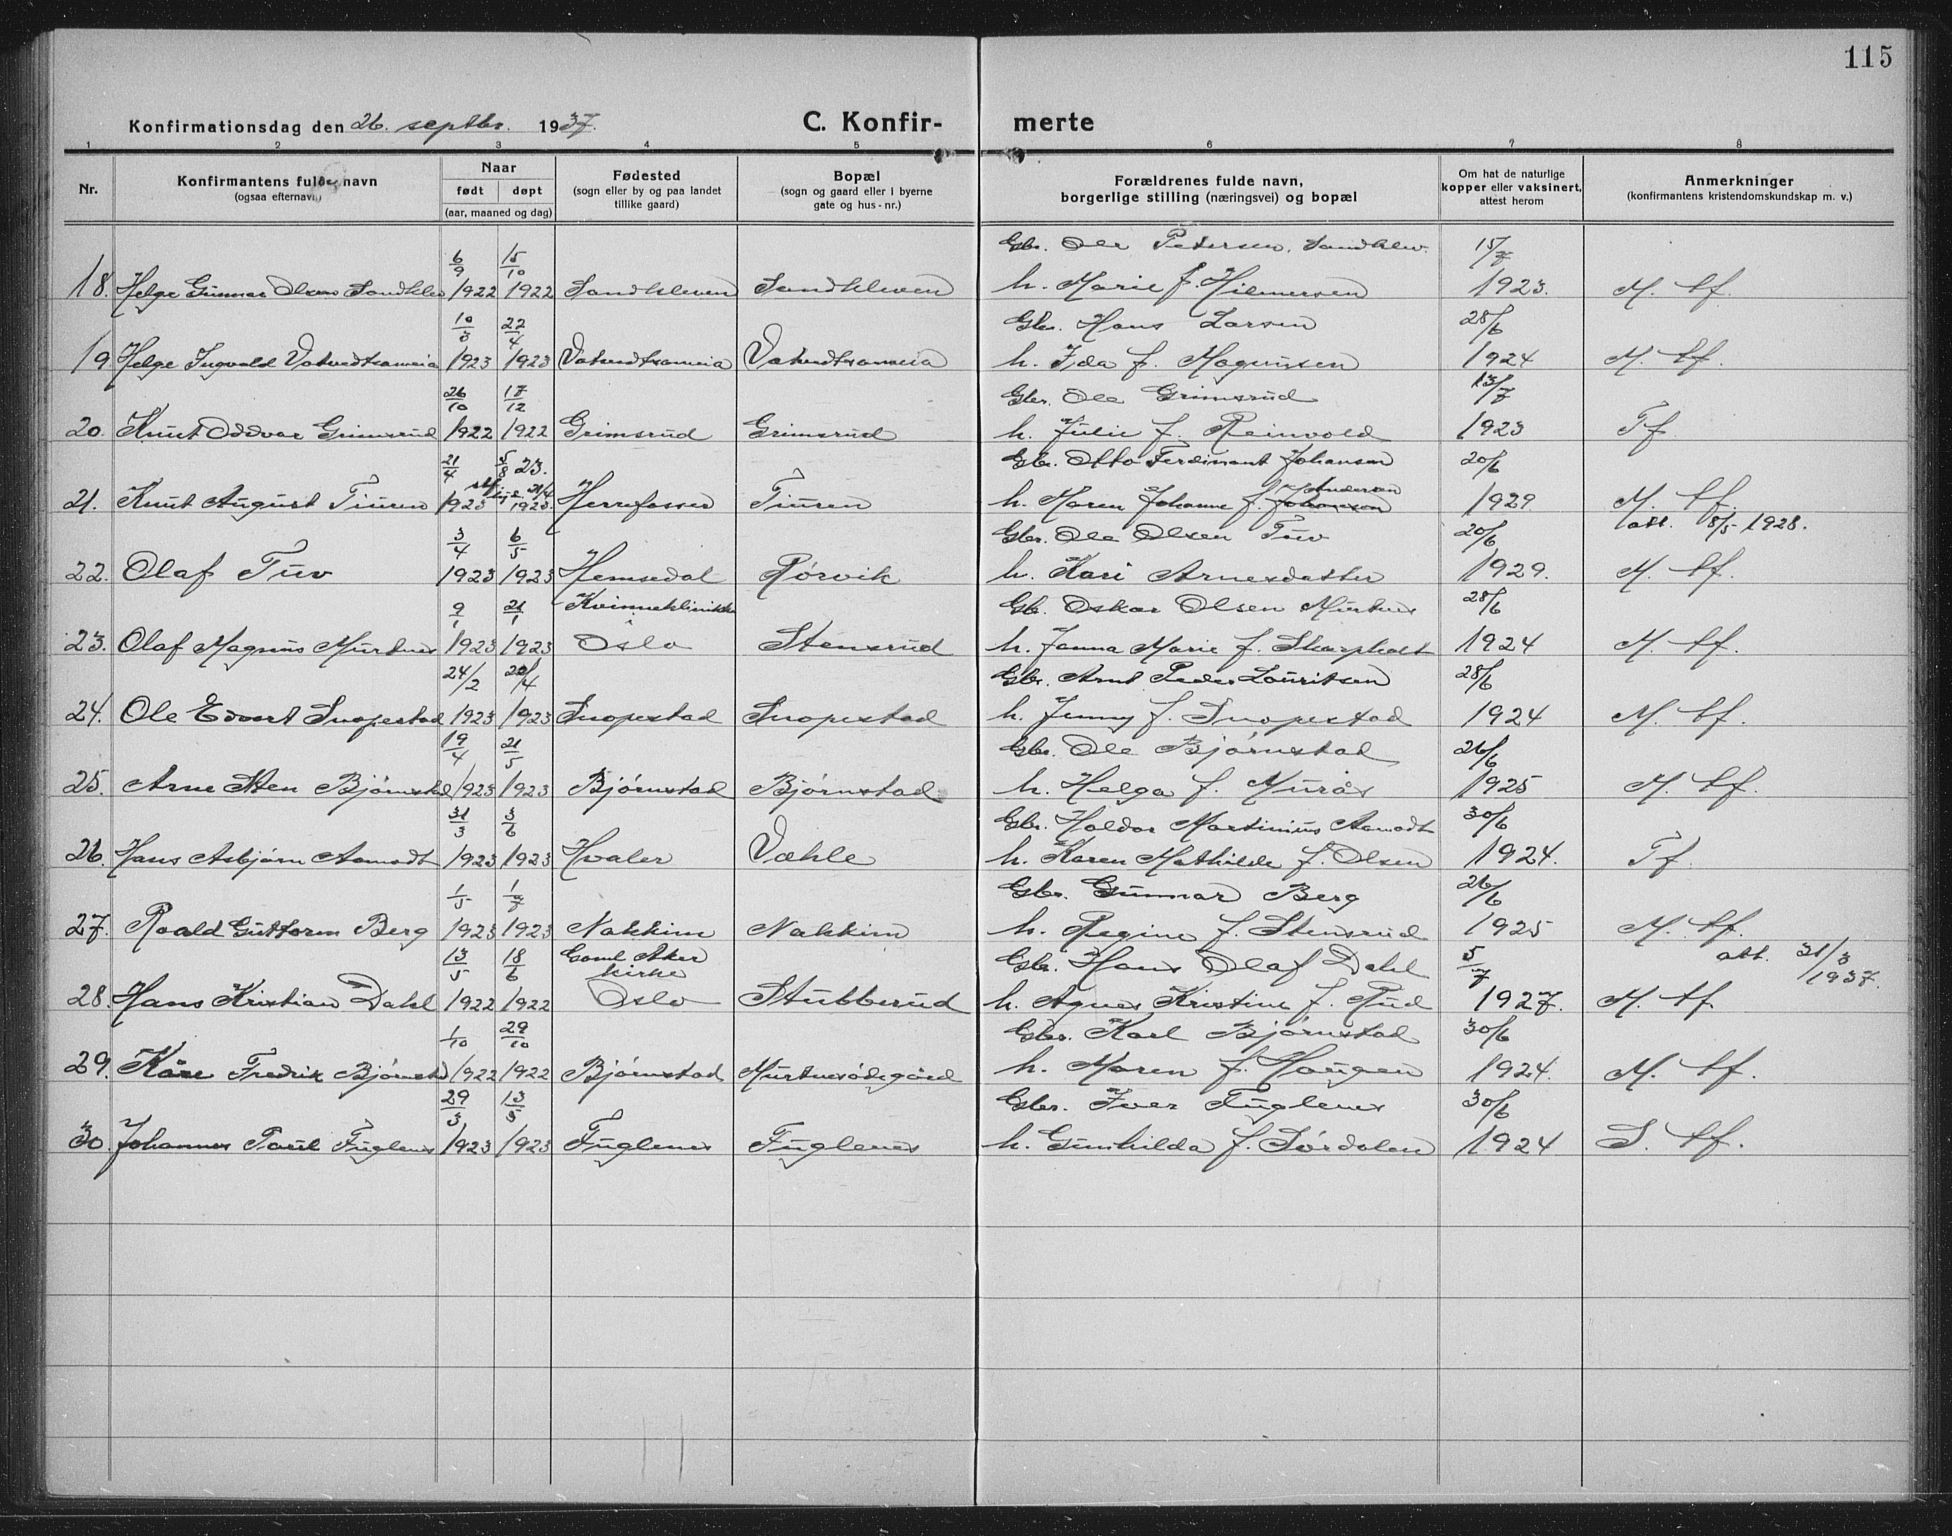 115
Konfirmationsdag den 26. septbr. 1937.
C. Konfir- merte
1 2 3 4 5 6 7 8
Nr.
Konfirmantens fulde navn
(ogsaa efternavn)
Naar
født døpt
(aar, maaned og dag)
Fødested
(sogn eller by og paa landet
tillike gaard)
Bopæl
(sogn og gaard eller i byerne
gate og hus-nr.)
Forældrenes fulde navn,
borgerlige stilling (næringsvei) og bopæl
Om hat de naturlige
kopper eller vaksinert,
attest herom
Anmerkninger
(konfirmantens kristendomskundskap m. v.)
6/9 15/10 Gbr. Ole Petersen Sandklev. 15/7
18. Helge Gunnar Olsen Sandklev 1922 1922 Sandkleven Sandkleven h. Marie f. Hilmersen 1923. M. tf.
10/3 22/4 Gbr. Hans Larsen 28/6
19. Helge Ingvald Vatvedtsameia 1923 1923 Vatvedtsameia Vatvedtsameia h. Ida f. Magnussen 1924 M. tf.
26/10 17/12 Gbr. Ole Grimsrud 13/7
20. Knut Oddvar Grimsrud 1922 1922 Grimsrud Grimsrud h. Julie f. Reinvold 1923 Tf.
21/4 5/8 23. Gbr. Otto Ferdinant Johansen 20/6
21/4 Andersen
21. Knut August Tiuren 1923 1923. Herrefosser Tiuren h. Maren Johanne f. Johansen 1929 M. tf.
3/4 6/5 Gbr. Ole Olsen Tuv 20/6 att. 8/5 1928.
22. Olaf Tuv 1923 1923 Hemsedal Rørvik h. Kari Arnesdatter 1929. M. tf.
9/1 21/1 Kvinneklinikken Gbr. Oskar Olsen Murtnes 28/6
23. Olaf Magnus Murtnes 1923 1923 Oslo Stensrud h. Janna Marie f. Skarpholt 1924 M. tf.
24/2 22/4 Gbr. Arnt Peder Lauritsen 28/6
24. Ole Edvart Snopestad 1923 1923 Snopestad Snopestad h. Jenny f. Snopestad 1924 M. tf.
19/4 21/5 Gbr. Ole Bjørnstad 26/6
25. Arne Sten Bjørnstad 1923 1923 Bjørnstad Bjørnstad h. Helga f. Murås 1925 M. tf.
31/3 3/6 Gbr. Haldor Martinius Aamodt 30/6
26. Hans Asbjørn Aamodt 1923 1923 Hvaler Væhle h. Karen Mathilde f. Olsen 1924. Tf.
1/5 1/7 Gbr. Gunnar Berg 26/6
27. Roald Guttorm Berg 1923 1923 Nakkim Nakkim h. Regine f. Stensrud 1925 M. tf.
13/5 18/6 Gaml. Aker Gbr. Hans Olaf Dahl 5/7 att. 31/3
kirke 1937.
28. Hans Kristian Dahl 1922 1922 Oslo Stubberud h. Agnes Kristine f. Rud 1927. M. tf.
1/10 29/10 Gbr. Karl Bjørnstad 30/6
29. Kåre Fredrik Bjørnstd 1922 1922 Bjørnstad Murtnesødegård h. Maren f. Haugen 1924. M. tf.
29/3 13/5 Gbr. Iver Fuglenes 30/6
30. Johannes Paul Fuglenes 1923 1923 Fuglenes Fuglenes h. Gunhilda f. Sørdalen 1924 S. tf.